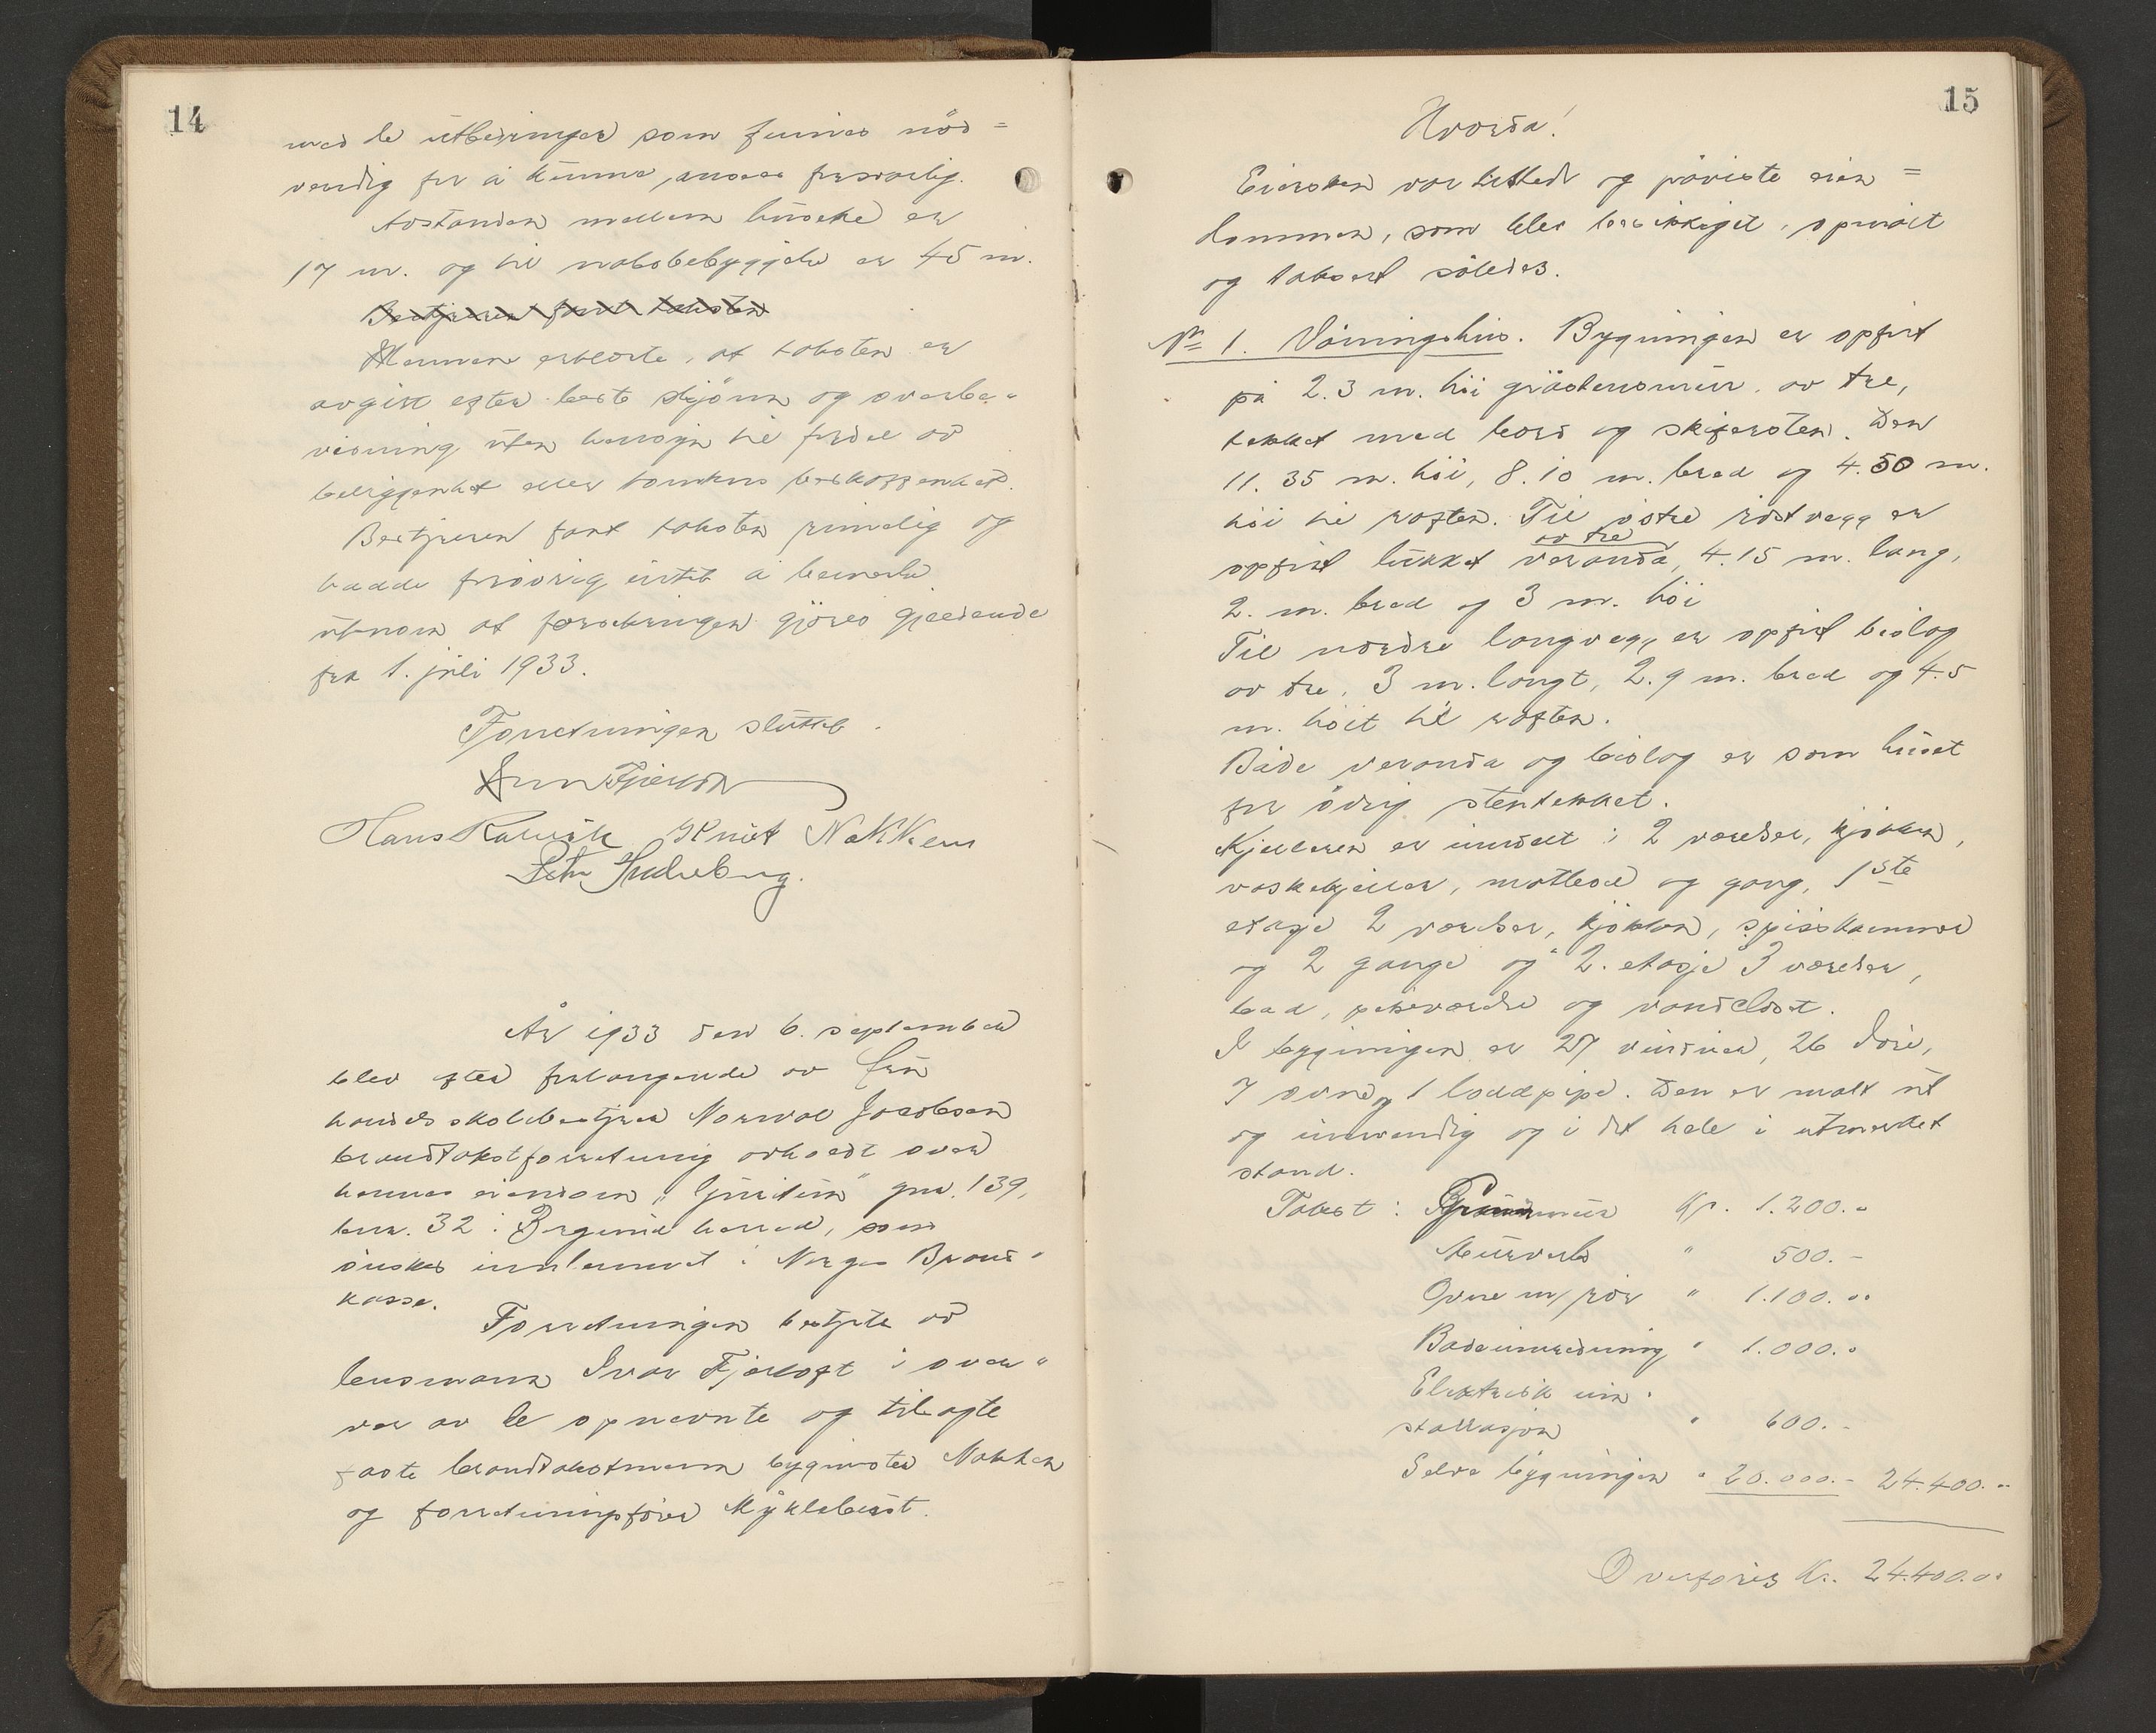 14
med de utbedringer som finnes nöd=
vendig for å kunne ansees forsvarlig.
Avstanden mellem husene er
17 m. og til nabobebyggelse er 45 m.
Bestyreren fant taksten
Mennene erklærte, at taksten er
avgitt efter beste skjönn og overbe-
visning uten hensyn til fordel av
beliggenhet eller tomtens beskaffenhet.
Bestyreren fant taksten rimelig og
hadde forövrig intet å bemerke
utenom at forsikringen gjöres gjeldende
fra 1. juli 1933.
Forretningen sluttet.
Ivar Fjærtoft
Hans Kalvik Knut Nakken
Petr
År 1933 den 6. september
blev efter forlangende av fru
handelsskolebestyrer Norval Jacobsen
brandtakstforretning avholdt over
hennes eiendom "Furutun" gnr. 139,
bnr. 32 i Borgund herred, som
önskes innlemmet i Norges Brand-
kasse.
Forretningen bestyrte av
lensmann Ivar Fjærtoft i over-
vær av de opnevnte og tilsagte
faste brandtakstmenn bygmester Nakken
og forretningsförer Myklebust.
15
Hvorda!
Eiersken var tilstede og påviste eien=
dommen, som blev besiktiget, opmålt
og taksert således.
No 1. Våningshus. Bygningen er opfört
på 2.3 m. höi gråstensmur, av tre,
tekket med bord og skifersten. Den
11.35 m. höi, 8.10 m. bred og 4.50 m.
höi til röften. Til östre röstvegg er
av tre
opfört lukket veranda, 4.15 m. lang,
2. m. bred og 3 m. höi
Til nordre langvegg er opfört bislag
av tre, 3 m. langt, 2.9 m. bred og 4.5
m. höit til röften.
Både veranda og bislag er som huset
for övrig stentekket.
Kjelleren er innredet i 2 værelser, kjökken,
vaskekjeller, matbod og gang, 1ste
etasje 2 værelser, kjökken, spisskammer
og 2 gange og 2. etasje 3 værelser,
bad, pikeværelse og vandclosett.
I bygningen er 27 vinduer, 26 döre,
7 ovne, og 1 loddpipe. Den er malt ut
og innvendig og i det hele i utmerket
stand.
Takst: Grunnmur Kr. 1.200.-
Murverk " 500.-
Ovne m/rör " 1.100.-
Badeinnredning " 1.000.-
Elektrisk inn-
stallasjon " 600.-
Selve bygningen " 20.000.- 24.400.-
Overföres Kr. 24.400.-